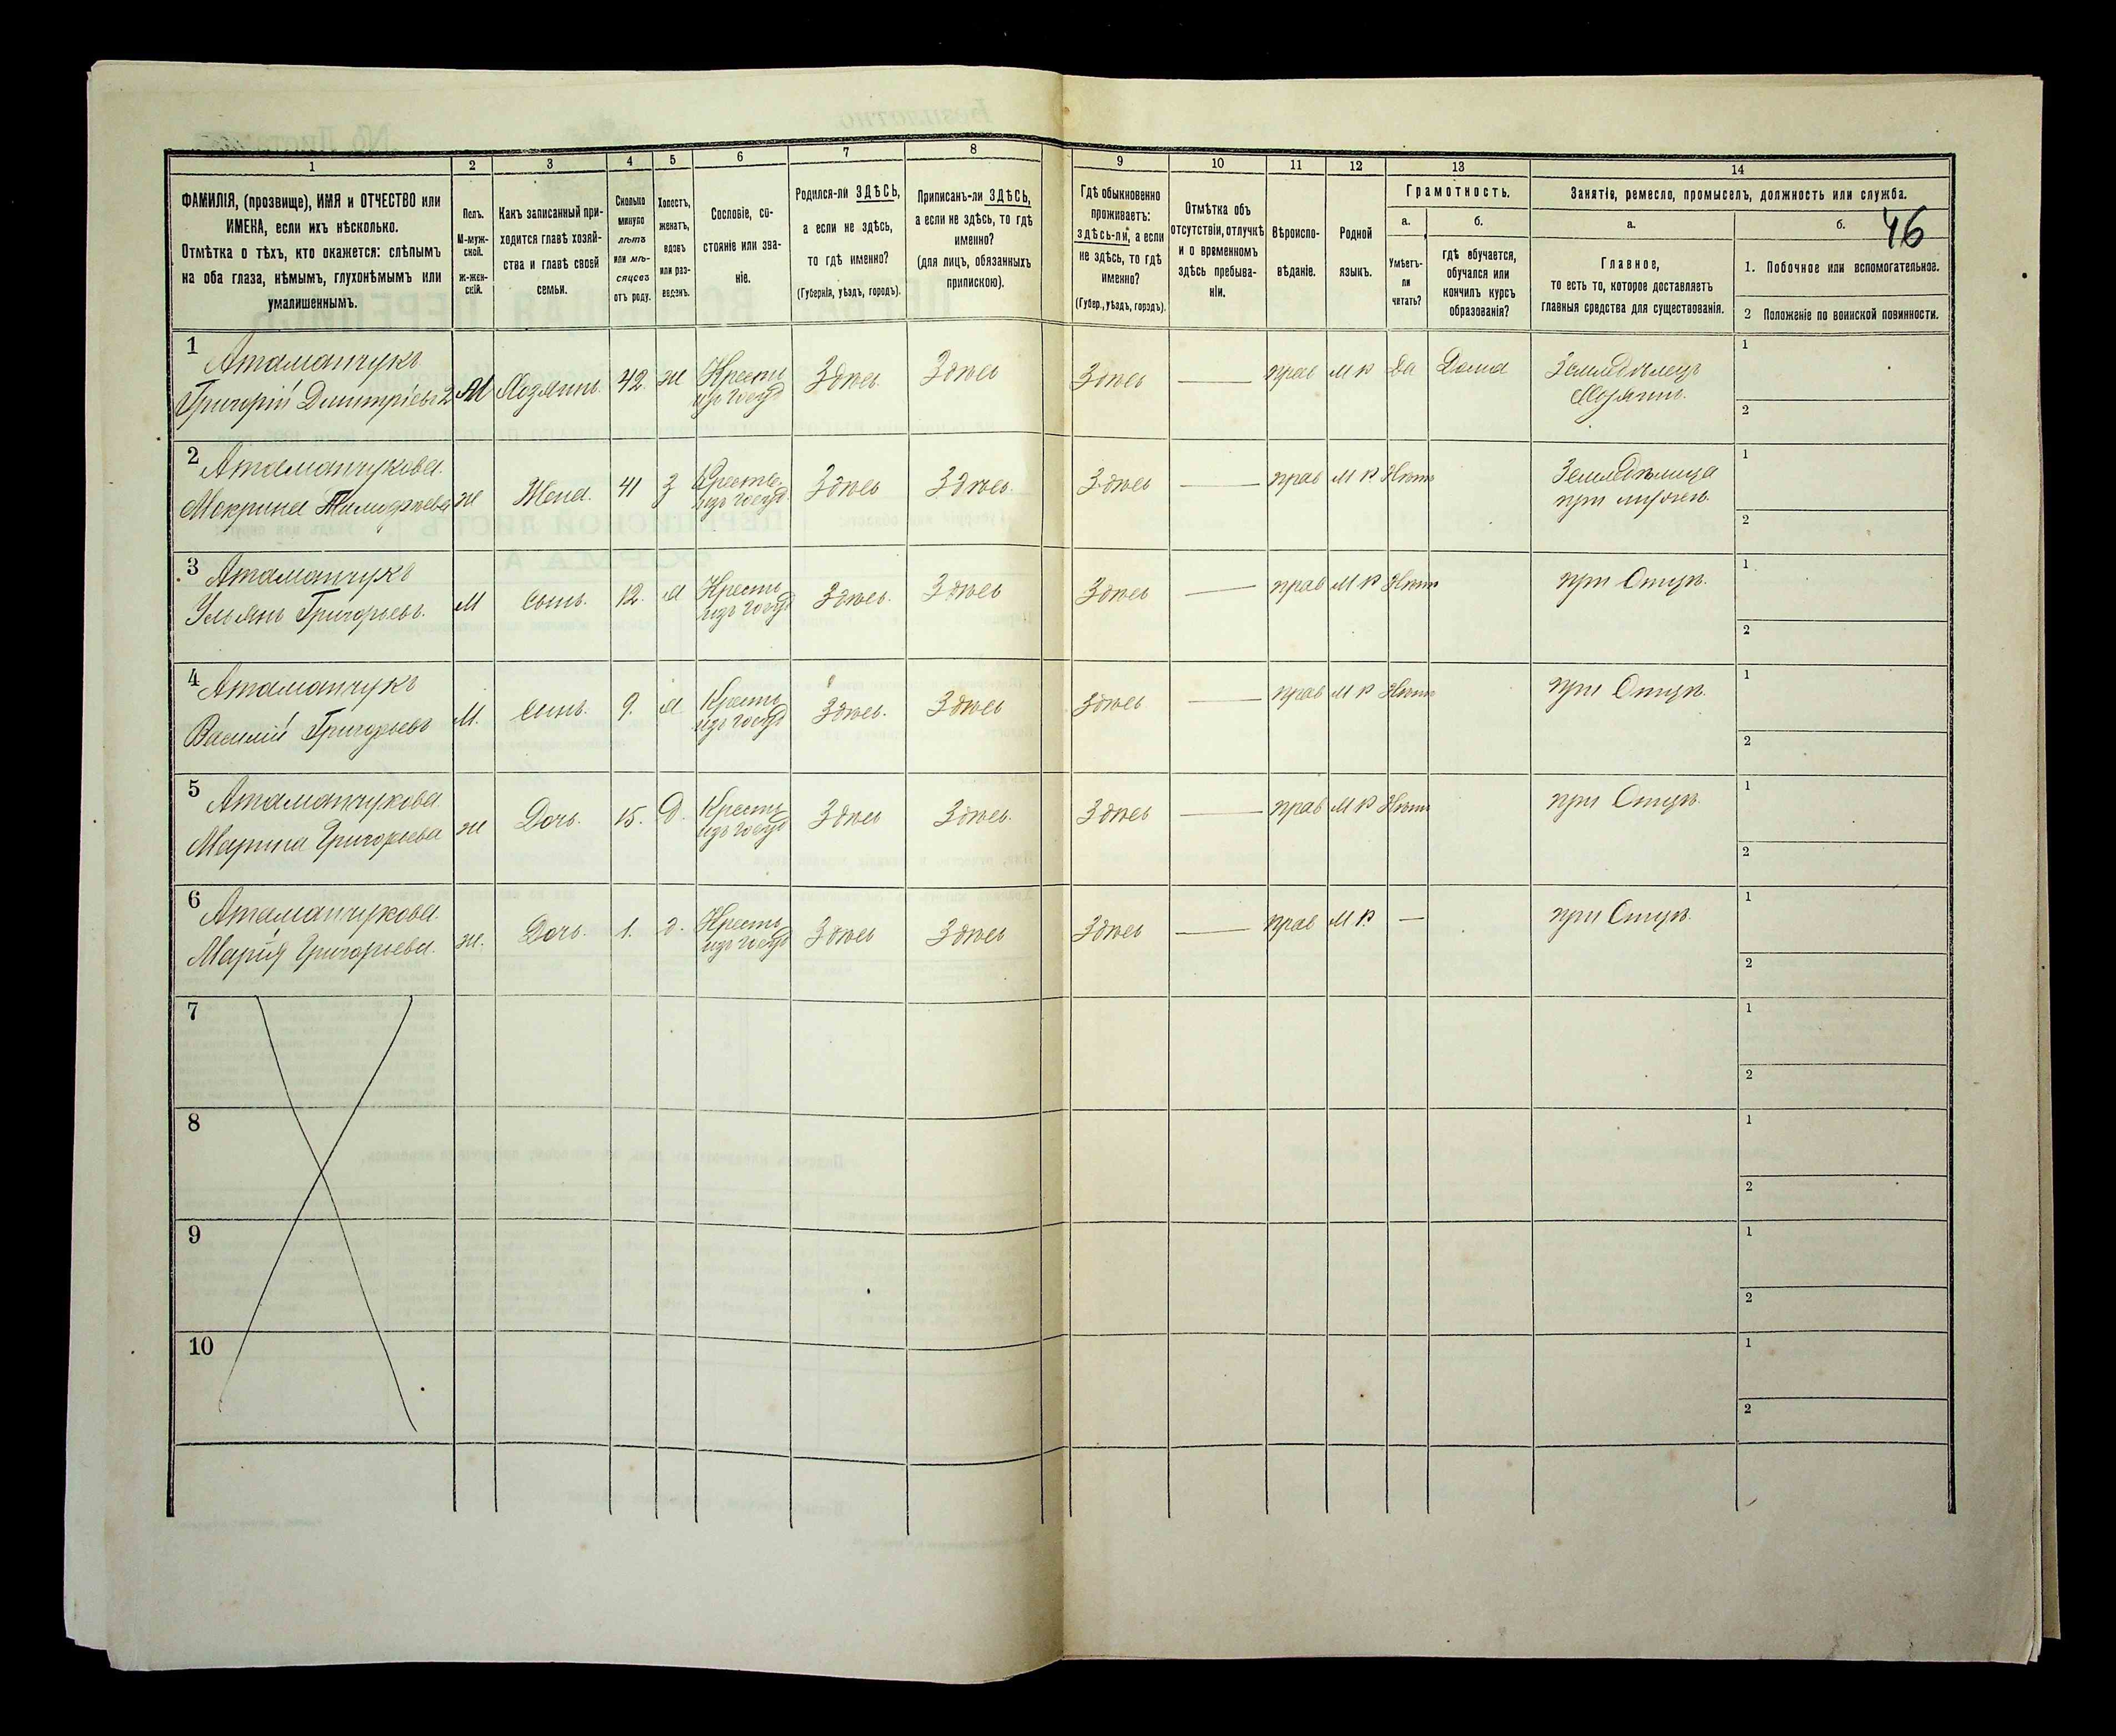 46
1 2 3 4 5 6 7 8 9 10 11 12 13 14
ФАМИЛІЯ, (прозвище), ИМЯ и ОТЧЕСТВО или
ИМЕНА, если ихъ нѣсколько.
Отмѣтка о тѣхъ, кто окажется: слѣпымъ
на оба глаза, нѣмымъ, глухонѣмымъ или
умалишеннымъ.
Полъ.
М-муж-
ской.
ж-жен-
скій.
Какъ записанный при-
ходится главѣ хозяй-
ства и главѣ своей
семьи.
Сколько
минуло
лѣтъ
или мѣ-
сяцевъ
отъ роду.
Холостъ,
женатъ,
вдовъ
или раз-
веденъ.
Сословіе, со-
стояніе или зва-
ніе.
Родился-ли ЗДѢСЬ,
а если не здѣсь,
то гдѣ именно?
(Губернія, уѣздъ, городъ).
Приписанъ-ли ЗДѢСЬ,
а если не здѣсь, то гдѣ
именно?
(для лицъ, обязанныхъ
припискою).
Гдѣ обыкновенно
проживаетъ:
здѣсь-ли, а если
не здѣсь, то гдѣ
именно?
(Губер., уѣздъ, городъ).
Отмѣтка объ
отсутствіи, отлучкѣ
и о временномъ
здѣсь пребыва-
ніи.
Вѣроиспо-
вѣданіе.
Родной
языкъ.
Грамотность.
а. б.
Умѣетъ-
ли
читать?
гдѣ обучается,
обучался или
кончилъ курсъ
образованія?
Занятіе, ремесло, промыселъ, должность или служба.
а. б.
Главное,
то есть то, которое доставляетъ
главныя средства для существованія.
1. Побочное или вспомогательное.
2 Положеніе по воинской повинности.
1 Атаманчукъ
Григорій Дмитріевъ 2 М Хозяинъ. 42. ж Кресть
изъ госуд Здѣсь. Здѣсь Здѣсь — прав М Р Да Дома Земледѣлецъ
Хозяинъ. 1 2
2 Атаманчукова.
Мокрина Тимофѣева ж Жена. 41 з Кресть.
изъ госуд. Здѣсь Здѣсь. Здѣсь — прав М Р Нѣтъ Земледѣлица
при мужѣ. 1 2
3 Атаманчукъ
Ульянъ Григорьевъ. М сынъ. 12. х Кресть
изъ госуд Здѣсь. Здѣсь Здѣсь — прав М Р Нѣтъ при Отцѣ. 1 2
4 Атаманчукъ
Василій Григорьевъ М. сынъ. 9. х Кресть
изъ госуд Здѣсь. Здѣсь Здѣсь — прав М Р Нѣтъ при Отцѣ. 1 2
5 Атаманчукова
Марина Григорьева ж Дочь. 15. Д. Кресть
изъ госуд Здѣсь Здѣсь. Здѣсь — прав М Р Нѣтъ при Отцѣ. 1 2
6 Атаманчукова.
Марія Григорьева. ж. Дочь. 1. д. Кресть
изъ госуд Здѣсь Здѣсь Здѣсь — прав М Р. — при Отцѣ. 1 2
7 1 2
8 1 2
9 1 2
10 1 2